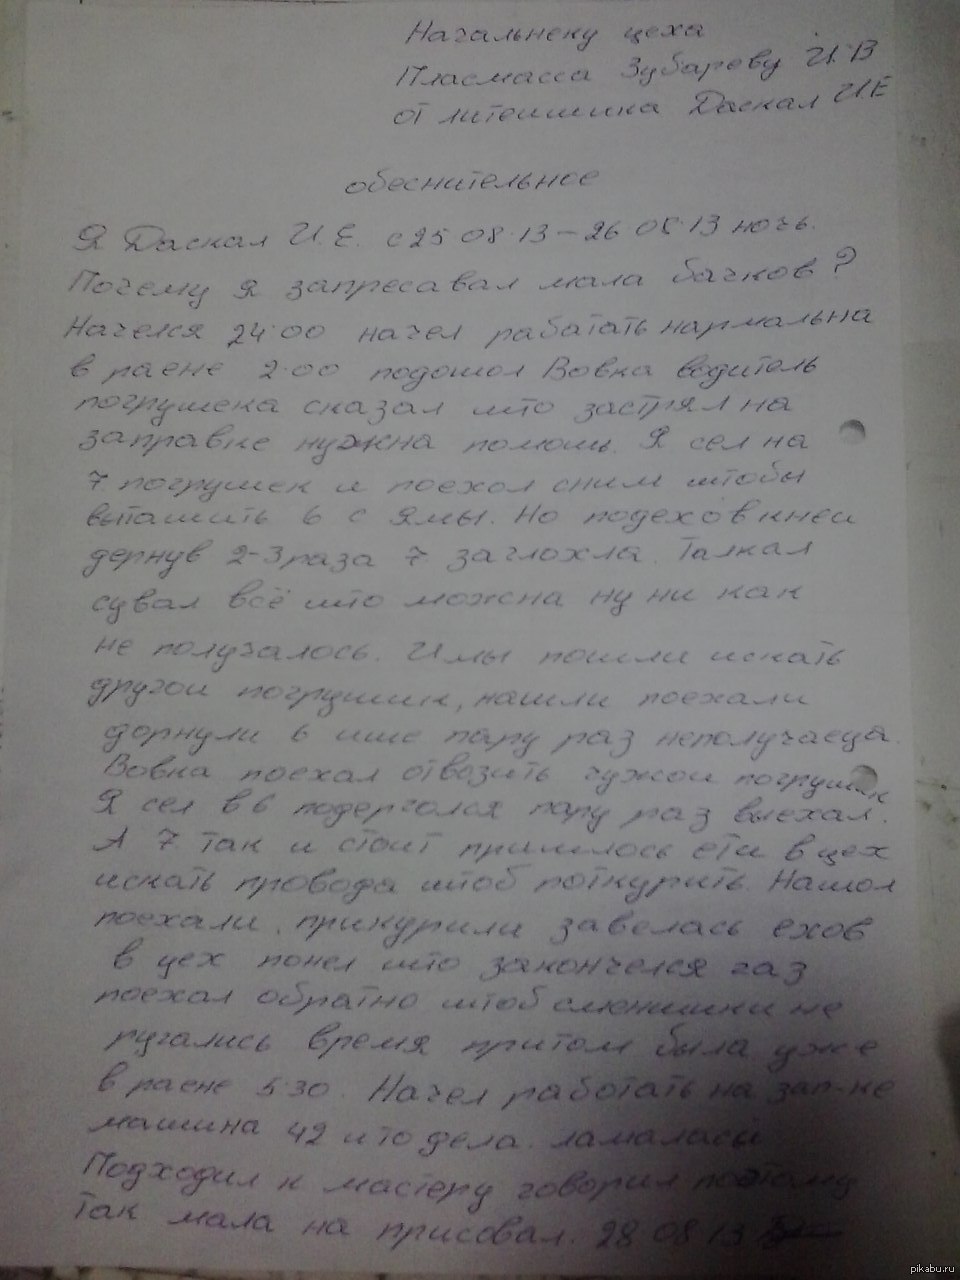 Начальнеку цеха
Пласмасса Зубареву И.В
от литеишика Даскал И.Е
обеснительное
Я Даскал И.Е. с 25 08.13 – 26 08.13 ночь.
Почему я запресавал мала бачков?
Начелся 24.00 начел рабатать нармальна
в раене 2.00 подошол Вовка водитель
погрушека сказал што застрял на
заправке нужна помошь. Я сел на
7 погрушек и поехол сним штобы
выташить 6 с Ямы. Но подехов кнеи
дернув 2-3 раза 7 заглохла. Талкал
сувал всё што можна ну ни как
не получалось. И мы пошли искать
другои погрушик, нашли поехали
дорнули 6 ише пару раз неполучаеца.
Вовка поехал отвозить чужои погрушик
Я сел в 6 подерголся пару раз выехал.
А 7 так и стоит пришлось ети в цех
искать провода штоб поткурить. Нашол
поехали, прикурили завелась ехов
в цех понел што закончелся газ
поехал обратно штоб сменшики не
ругались время притом была уже
в раене 5.30. Начел работать на зап-ке
машина 42 и то дела ламалась
Подходил к мастеру говорил поэтому
так мала на присовал. 28 08 13
pikabu.ru